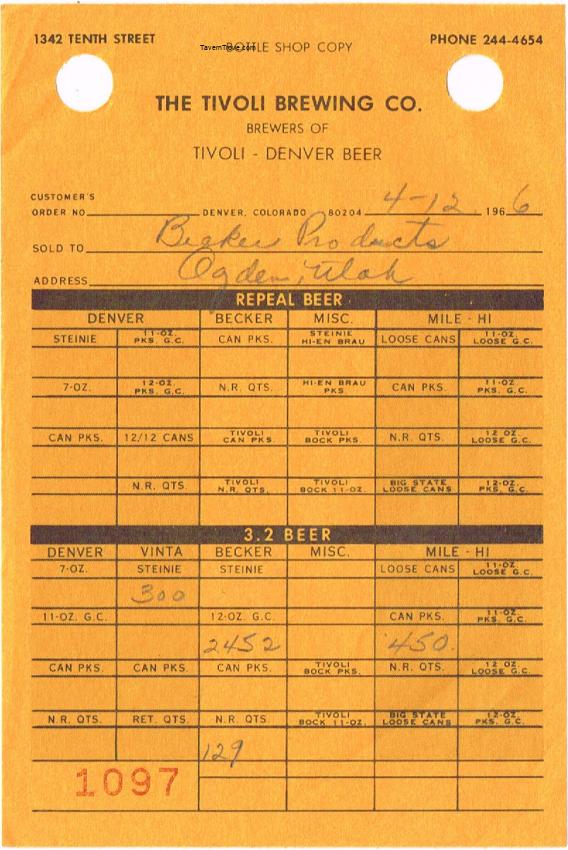 1342 TENTH STREET BOTTLE SHOP COPY PHONE 244-4654
TavernTrove.com
THE TIVOLI BREWING CO.
BREWERS OF
TIVOLI - DENVER BEER
CUSTOMER'S
ORDER NO. DENVER, COLORADO 80204 4-12 1966
SOLD TO Becker Products
ADDRESS Ogden, Utah
REPEAL BEER
DENVER BECKER MISC. MILE - HI
STEINIE 11-OZ. PKS. G.C. CAN PKS. STEINIE HI-EN BRAU LOOSE CANS 11-OZ. LOOSE G.C.
7-OZ. 12-OZ. PKS. G.C. N.R. QTS. HI-EN BRAU PKS. CAN PKS. 11-OZ. PKS. G.C.
CAN PKS. 12/12 CANS TIVOLI CAN PKS. TIVOLI BOCK PKS. N.R. QTS. 12 OZ. LOOSE G.C.
N.R. QTS. TIVOLI N.R. QTS. TIVOLI BOCK 11-OZ. BIG STATE LOOSE CANS 12-OZ. PKS. G.C.
3.2 BEER
DENVER VINTA BECKER MISC. MILE - HI
7-OZ. STEINIE STEINIE LOOSE CANS 11-OZ. LOOSE G.C.
300
11-OZ. G.C. 12-OZ. G.C. CAN PKS. 11-OZ. PKS. G.C.
2452 450.
CAN PKS. CAN PKS. CAN PKS. TIVOLI BOCK PKS. N.R. QTS. 12 OZ. LOOSE G.C.
N.R. QTS. RET. QTS. N.R. QTS TIVOLI BOCK 11-OZ. BIG STATE LOOSE CANS 12-OZ. PKS. G.C.
129
1097